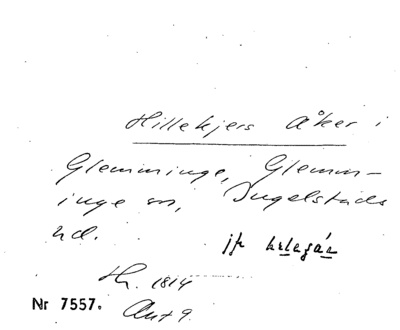 Hillekjers Åker i
Glemminge, Glemm-
inge sn, Ingelstads
hd.
jfr
Hr. 1814
Nr 7557.
Akt 9.